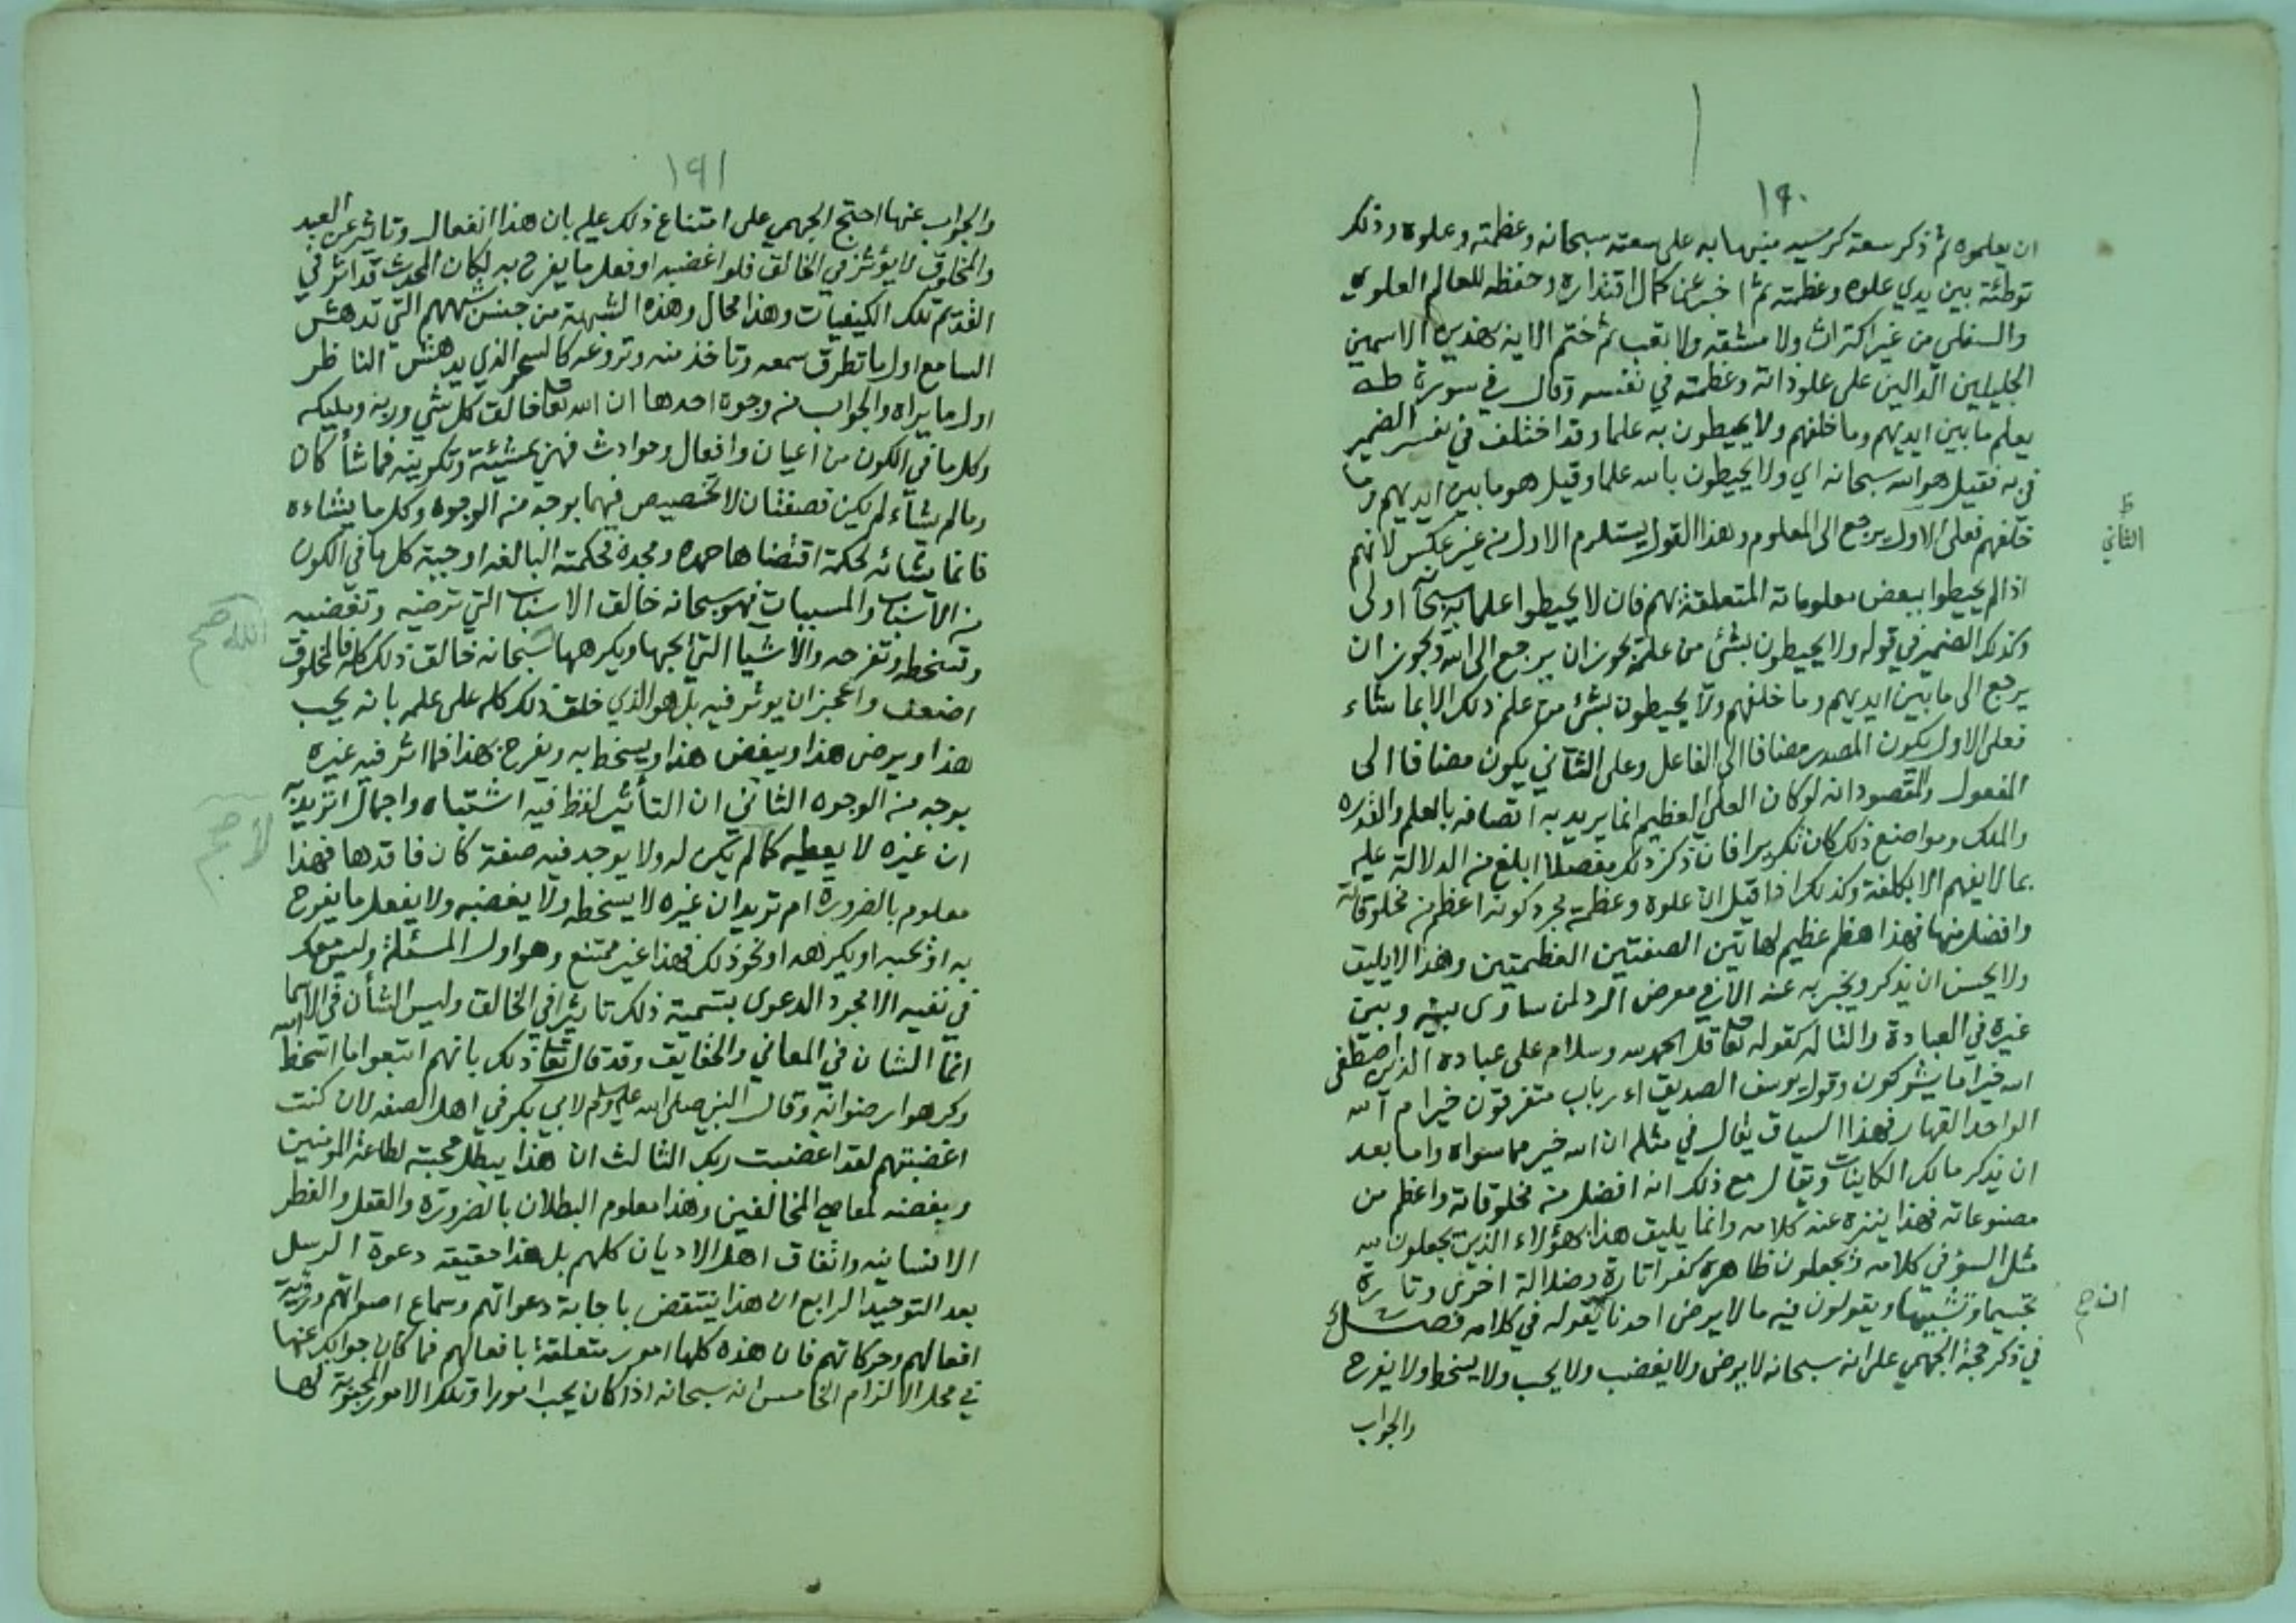 ١٩٠
ان يعلموه ثم ذكر سعة كرسيه منبها به على سعته سبحانه وعظمته وعلوه وذلك
توطئة بين يدي علوه وعظمته ثم اخبر عن كمال اقتداره وحفظه للعالم العلوي
والسفلي من غير اكتراث ولا مشقه ولا تعب ثم ختم الايه بهذين الاسمين
الجليلين الدالين على علو ذاته وعظمته في نفسه وقال في سورة طه
يعلم ما بين ايديهم وما خلفهم ولا يحيطون به علما وقد اختلف في تفسير الضمير
في به فقيل هو الله سبحانه اي ولا يحيطون بالله علما وقيل هو ما بين ايديهم وما
خلفهم فعلى الاول يرجع الى المعلوم وهذا القول يستلزم الاول من غير عكس لانهم
ط
الثاني
اذا لم يحيطوا ببعض معلوماته المتعلقة بهم فان لا يحيطوا علما به سبحانه اولى
وكذلك الضمير في قوله ولا يحيطون بشئ من علمه يجوز ان يرجع الى الله ويجوز ان
يرجع الى ما بين ايديهم وما خلفهم ولا يحيطون بشئ من علم ذلك الا بما شاء
فعلى الاول يكون المصدر مضافا الى الفاعل وعلى الثاني يكون مضافا الى
المفعول والمقصود انه لو كان العلي العظيم انما يريد به اتصافه بالعلم والقدره
والملك ومواضع ذلك كان تكريرا فان ذكر ذلك مفصلا ابلغ من الدلالة عليه
بما لا يفهم الا بكلفة وكذلك اذا قيل ان علوه وعظمته مجرد كونه اعظم من مخلوقاته
وافضل منها فهذا هظم عظيم لهاتين الصفتين العظيمتين وهذا لا يليق
ولا يحسن ان يذكر ويخبر به عنه الا في معرض الرد لمن ساوى بينه وبين
غيره في العبادة والتاله كقوله تعا قل الحمد لله وسلام على عباده الذين اصطفى
الله خير اما يشركون وقول يوسف الصديق اء رباب متفرقون خير ام الله
الواحد القهار فهذا السياق يقال في مثله ان الله خير مما سواه واما بعد
ان يذكر مالك الكاينات ويقال مع ذلك انه افضل من مخلوقاته واعظم من
مصنوعاته فهذا ينزه عنه كلامه وانما يليق هذا بهؤلاء الذين يجعلون لله
مثل السؤ في كلامه ويجعلون ظاهره كفرا تارة وضلالة اخرى وتارة
تجسيما وتشبيها ويقولون فيه ما لا يرضى احدنا يقوله في كلامه فصل
في ذكر حجة الجهمي على انه سبحانه لا يرضى ولا يغضب ولا يحب ولا يسخط ولا يفرح
والجواب
١٩١
والجواب عنها احتج الجهمي على امتناع ذلك عليه بان هذا انفعال وتاثير عن العبد
والمخلوق لا يؤثر في الخالق فلو اغضبه او فعل ما يفرح به لكان المحدث قد اثر في
القديم تلك الكيفيات وهذا محال وهذه الشبهة من جنس شبههم التي تدهش
السامع اول ما تطرق سمعه وتاخذ منه وتروعه كالسحر الذي يدهش الناظر
اول ما يراه والجواب من وجوه احدها ان الله تعا خالق كل شي وربه ومليكه
وكل ما في الكون من اعيان وافعال وحوادث فهي بمشيئته وتكوينه فما شأ كان
وما لم يشاء لم يكن قصفتان لا تخصيص فيهما بوجه من الوجوه وكل ما يشاءه
فانما يشائه لحكمة اقتضاها حمده ومجده فحكمته البالغه اوجبت كل ما في الكون
من الاسباب والمسببات فهو سبحانه خالق الاسباب التي ترضيه وتغضبه
وتسخطه وتفرحه والاشيا التي يحبها ويكرهها سبحانه خالق ذلك كله فالمخلوق
الله صح
اضعف واعجز ان يوثر فيه بل هو الذي خلق ذلك كله على علمه بانه يحب
هذا ويرضى هذا ويبغض هذا ويسخط به ويفرح بهذا فما اثر فيه غيره
بوجه من الوجوه الثاني ان التأثير لفظ فيه اشتباه واجمال اتريد به
ان غيره لا يعطيه كما لم يكن له ولا يوجد فيه صفة كان فاقدها فهذا
لا صح
معلوم بالضرورة ام تريد ان غيره لا يسخطه ولا يغضبه ولا يفعل ما يفرح
به او يحبه او يكرهه او نحو ذلك فهذا غير ممتنع وهو اول المسئلة وليس معك
في نفيه الا مجرد الدعوى بتسمية ذلك تاثيرا في الخالق وليس الشأن في الاسما
انما الشان في المعاني والحقايق وقد قال تعا ذلك بانهم اتبعوا ما اسخط الله
وكرهوا رضوانه وقال النبي صلى الله عليه وسلم لابي بكر في اهل الصفه لان كنت
اغضبتهم لقد اغضبت ربك الثالث ان هذا يبطل محبته لطاعة المومنين
وبغضه لمعاصي المخالفين وهذا معلوم البطلان بالضرورة والعقل والفطر
الانسانيه واتفاق اهل الاديان كلهم بل هذا حقيقة دعوة الرسل
بعد التوحيد الرابع ان هذا ينتقض باجابة دعواتهم وسماع اصواتهم ورؤية
افعالهم وحركاتهم فان هذه كلها امور متعلقة بافعالهم فما كان جوابك عنها
في محل الالزام الخامس انه سبحانه اذا كان يحب امورا وتلك الامور المحبوبة لها